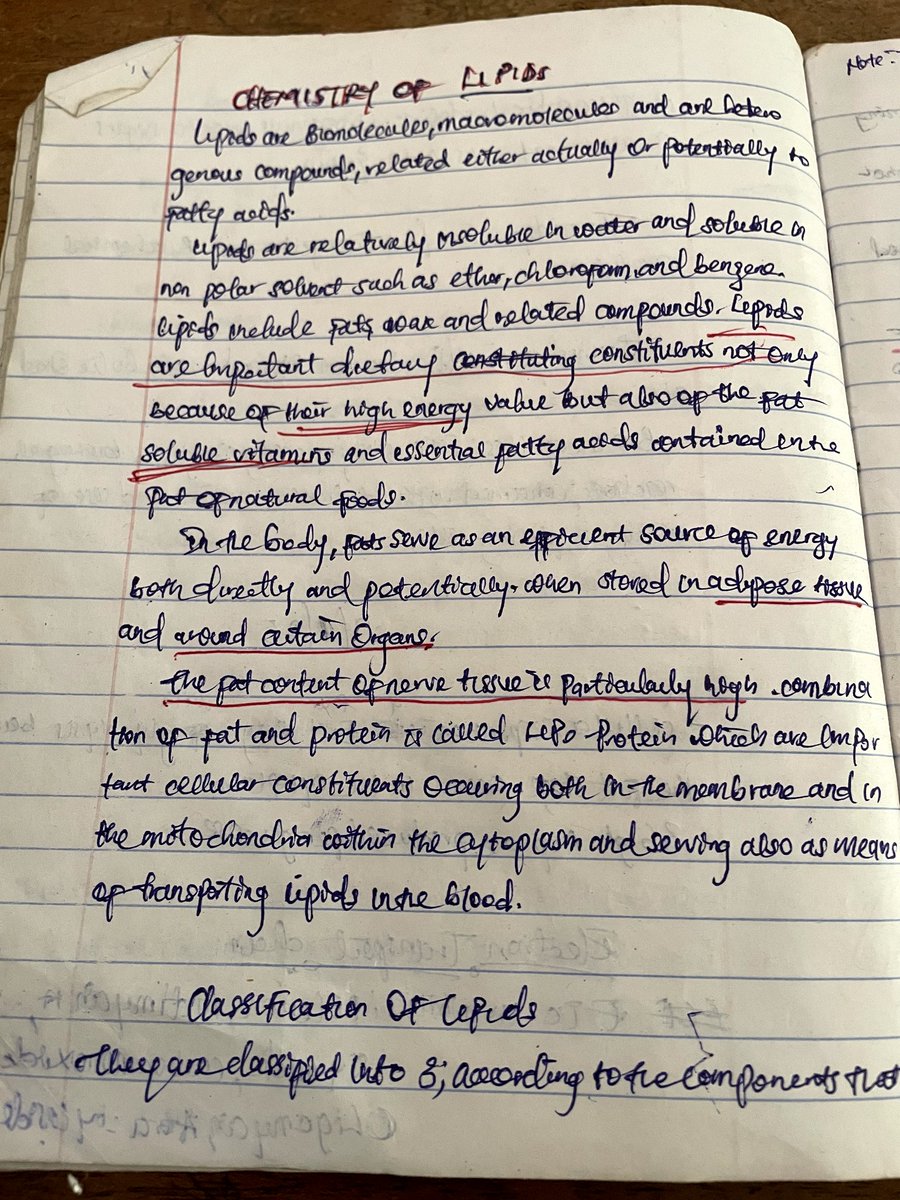 Note:
CHEMISTRY OF LIPIDS
Lipids are Biomolecules, macromolecules and are hetero
genous compounds, related either actually or potentially to
fatty acids.
Lipids are relatively insoluble in water and soluble in
non polar solvent such as ether, chloroform, and benzene.
Lipids include fats, wax and related compounds. Lipids
are Important dietary constituting constituents not only
because of their high energy value but also of the fat
soluble vitamins and essential fatty acids contained in the
fat of natural foods.
In the body, fats serve as an efficient source of energy
both directly and potentially. when stored in adipose tissue
and around certain Organs.
the fat content of nerve tissue is particularly high. combina
tion of fat and protein is called Lipo Protein which are Impor
tant cellular constituents Occuring both in the membrane and in
the mitochondria within the cytoplasm and serving also as means
of transporting Lipids in the blood.
Classification Of Lipids
They are classified into 3; according to the components that